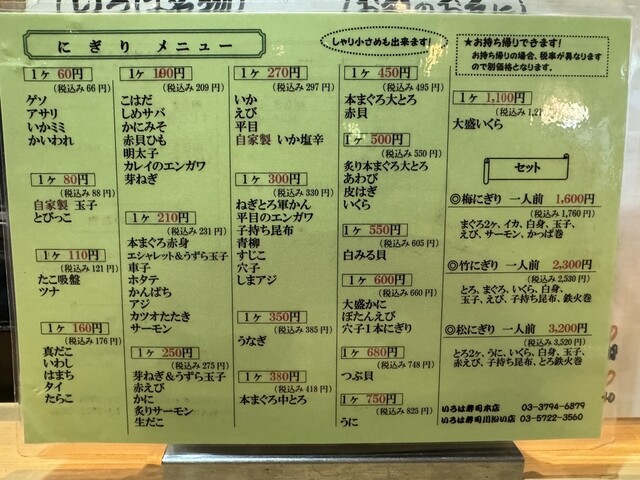 にぎり メニュー
しゃり小さめも出来ます!
★お持ち帰りできます!
お持ち帰りの場合、税率が異なります
ので別価格となります。
1ヶ 60円
(税込み 66 円)
ゲソ
アサリ
いかミミ
かいわれ
1ヶ 80円
(税込み 88 円)
自家製 玉子
とびっこ
1ヶ 110円
(税込み 121 円)
たこ吸盤
ツナ
1ヶ 160円
(税込み 176 円)
真だこ
いわし
はまち
タイ
たらこ
1ヶ 190円
(税込み 209 円)
こはだ
しめサバ
かにみそ
赤貝ひも
明太子
カレイのエンガワ
芽ねぎ
1ヶ 210円
(税込み 231 円)
本まぐろ赤身
エシャレット&うずら玉子
車子
ホタテ
かんぱち
アジ
カツオたたき
サーモン
1ヶ 250円
(税込み 275 円)
芽ねぎ&うずら玉子
赤えび
かに
炙りサーモン
生だこ
1ヶ 270円
(税込み 297 円)
いか
えび
平目
自家製 いか塩辛
1ヶ 300円
(税込み 330 円)
ねぎとろ軍かん
平目のエンガワ
子持ち昆布
青柳
すじこ
穴子
しまアジ
1ヶ 350円
(税込み 385 円)
うなぎ
1ヶ 380円
(税込み 418 円)
本まぐろ中とろ
1ヶ 450円
(税込み 495 円)
本まぐろ大とろ
赤貝
1ヶ 500円
(税込み 550 円)
炙り本まぐろ大とろ
あわび
皮はぎ
いくら
1ヶ 550円
(税込み 605 円)
白みる貝
1ヶ 600円
(税込み 660 円)
大盛かに
ぼたんえび
穴子1本にぎり
1ヶ 680円
(税込み 748 円)
つぶ貝
1ヶ 750円
(税込み 825 円)
うに
1ヶ 1,100円
(税込み 1,21
大盛いくら
セット
◎梅にぎり 一人前 1,600円
(税込み 1,760 円)
まぐろ2ヶ、イカ、白身、玉子、
えび、サーモン、かっぱ巻
◎竹にぎり 一人前 2,300円
(税込み 2,530 円)
とろ、まぐろ、いくら、白身、
玉子、えび、子持ち昆布、鉄火巻
◎松にぎり 一人前 3,200円
(税込み 3,520 円)
とろ2ヶ、うに、いくら、白身、玉子、
赤えび、子持ち昆布、とろ鉄火巻
いろは寿司本店 03-3794-6879
いろは寿司川沿い店 03-5722-3560